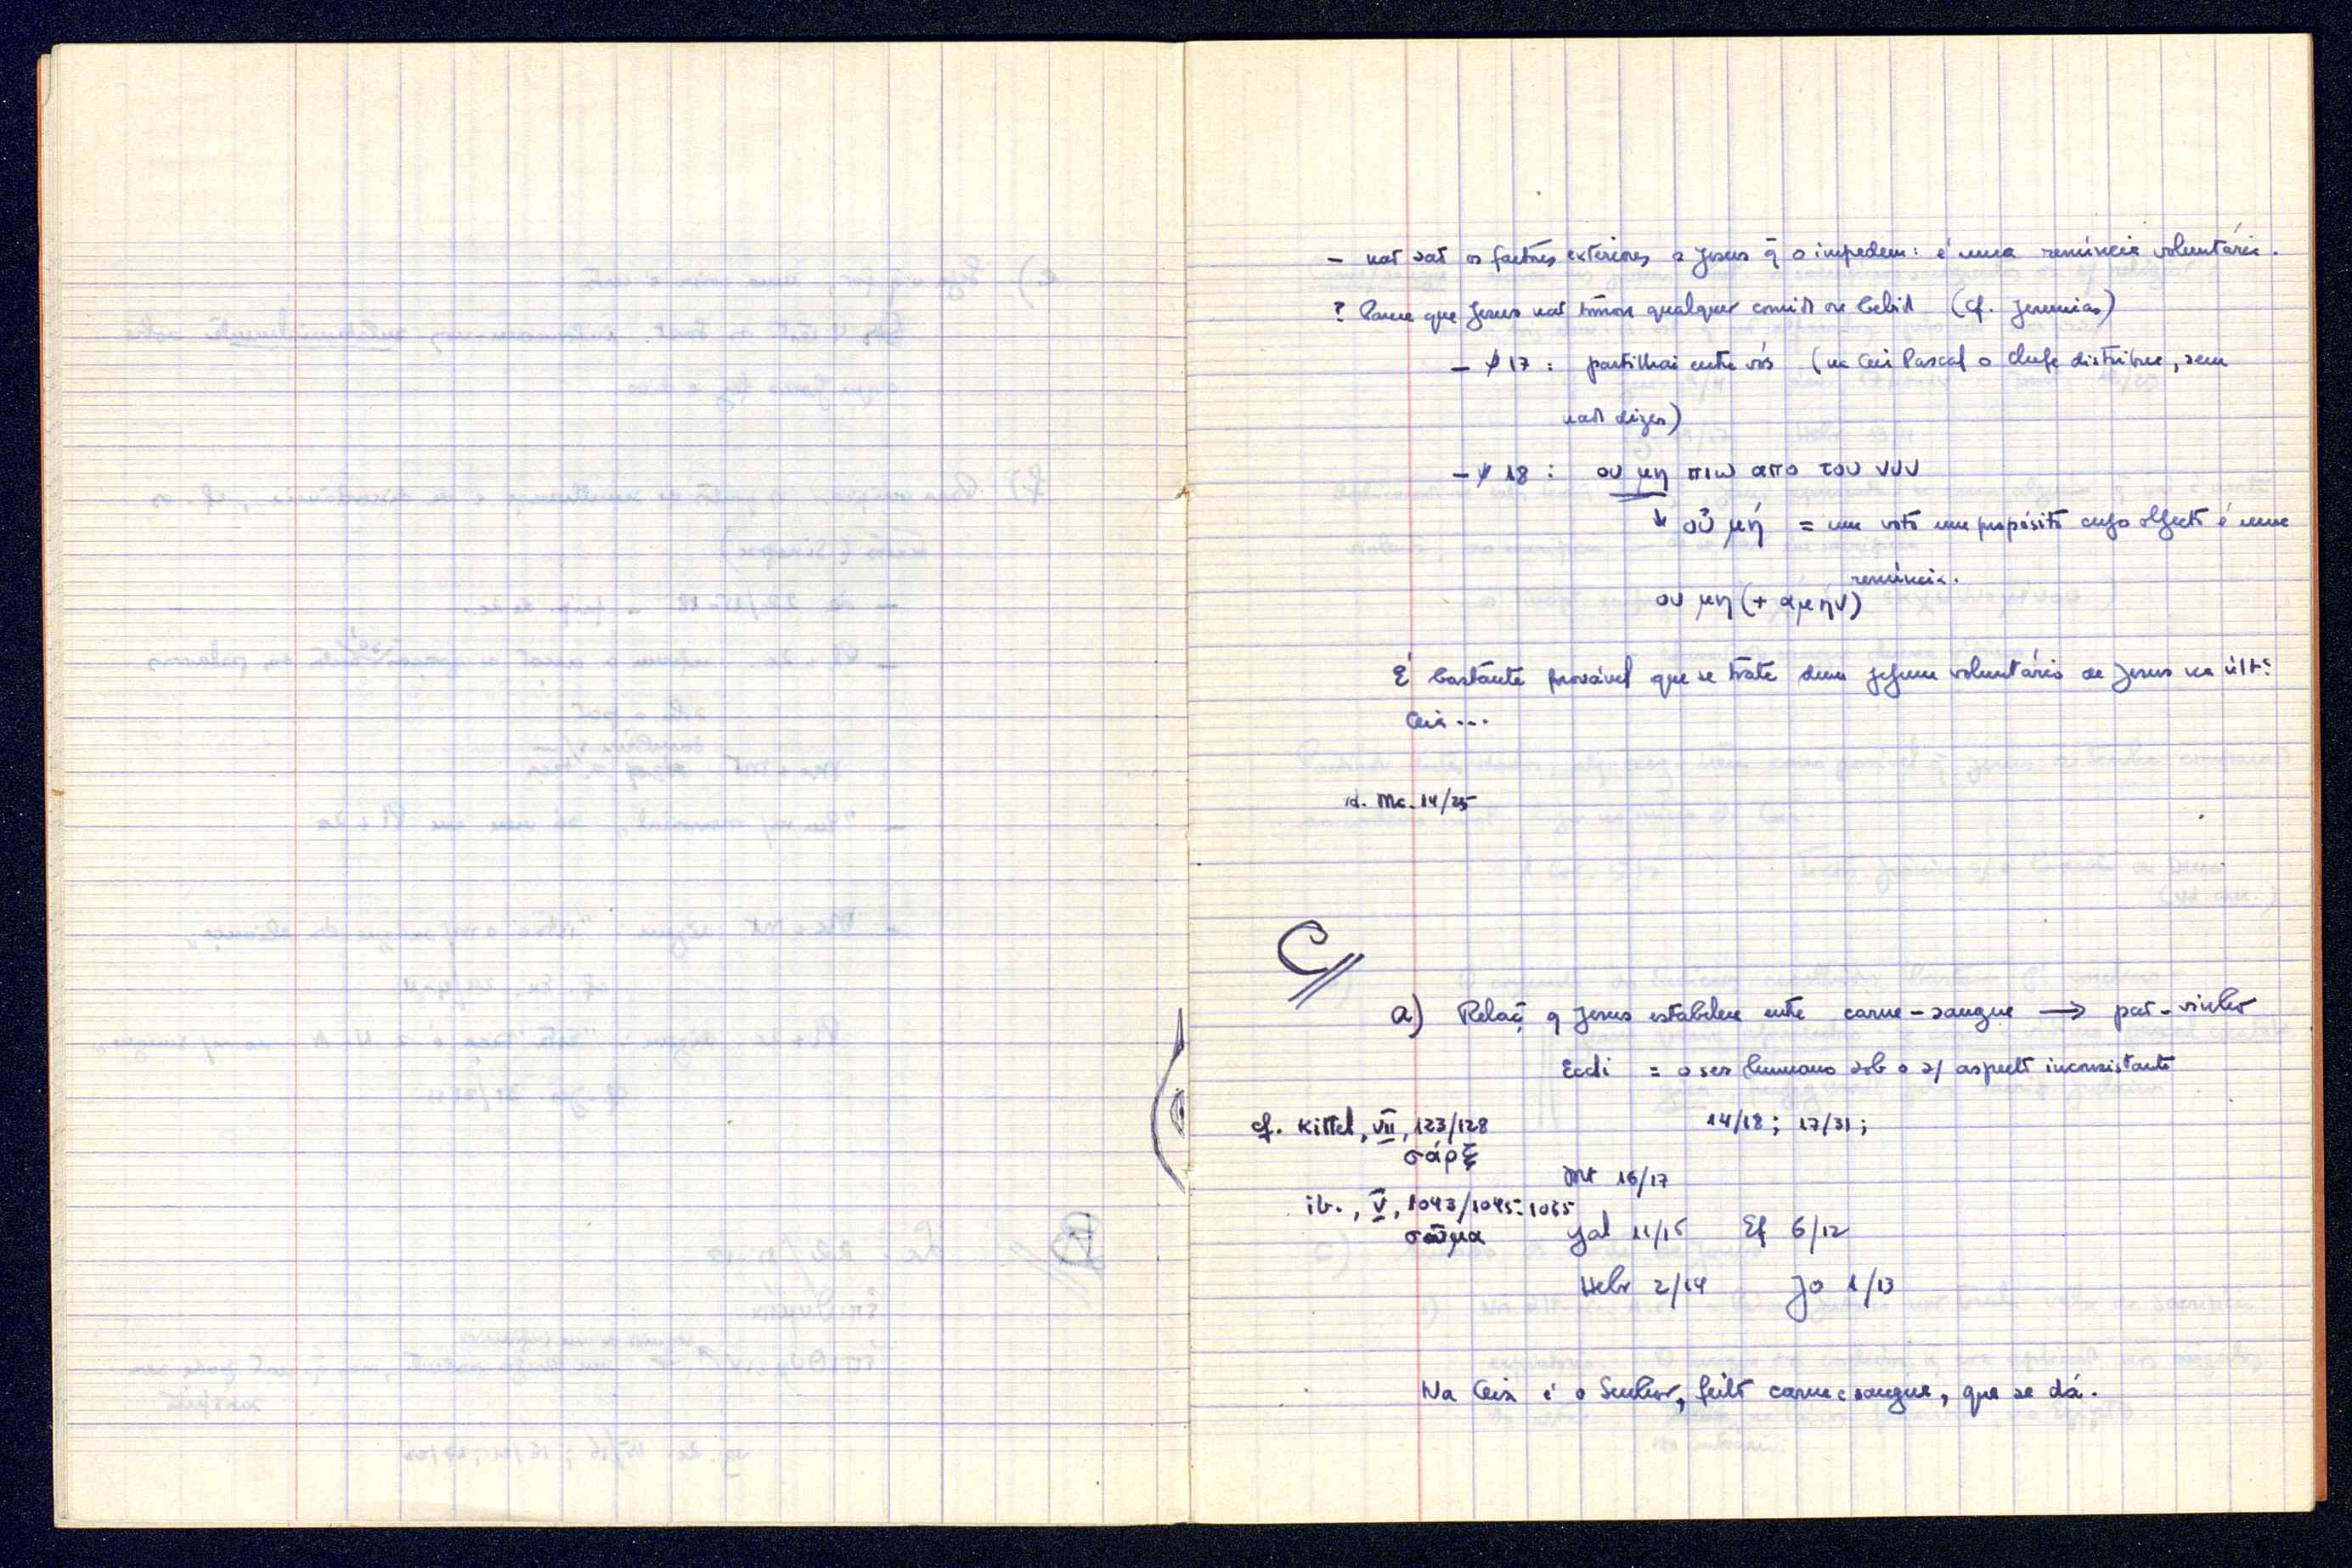 – não são os factores exteriores a Jesus q̃ o impedem: é uma renúncia voluntária.
? Parece que Jesus não tomou qualquer comida ou bebida (cf. Jeremias)
– ℣ 17 : partilhai entre vós (na Ceia Pascal o chefe distribue, sem
nada dizer)
– ℣ 18 : ου μη πιω απο του νυν
↓ οὐ μή = um voto um propósito cujo objecto é uma
renúncia.
ου μη (+ αμην)
É bastante provável que se trate dum jejum voluntário de Jesus na últ.ª
Ceia ...
id. Mc. 14/25
C//
a) Relaç. q Jesus estabelece entre carne – sangue → pão – vinho
Ecli = o ser humano sob o s/ aspecto inconsistente
14/18 ; 17/31 ;
cf. Kittel, VII, 123/128
σάρξ
Mt 16/17
ib., V, 1043/1045-1065
σῶμα
Gal 11/16 Ef 6/12
Hebr 2/14 Jo 1/13
Na Ceia é o Senhor, feito carne e sangue, que se dá.